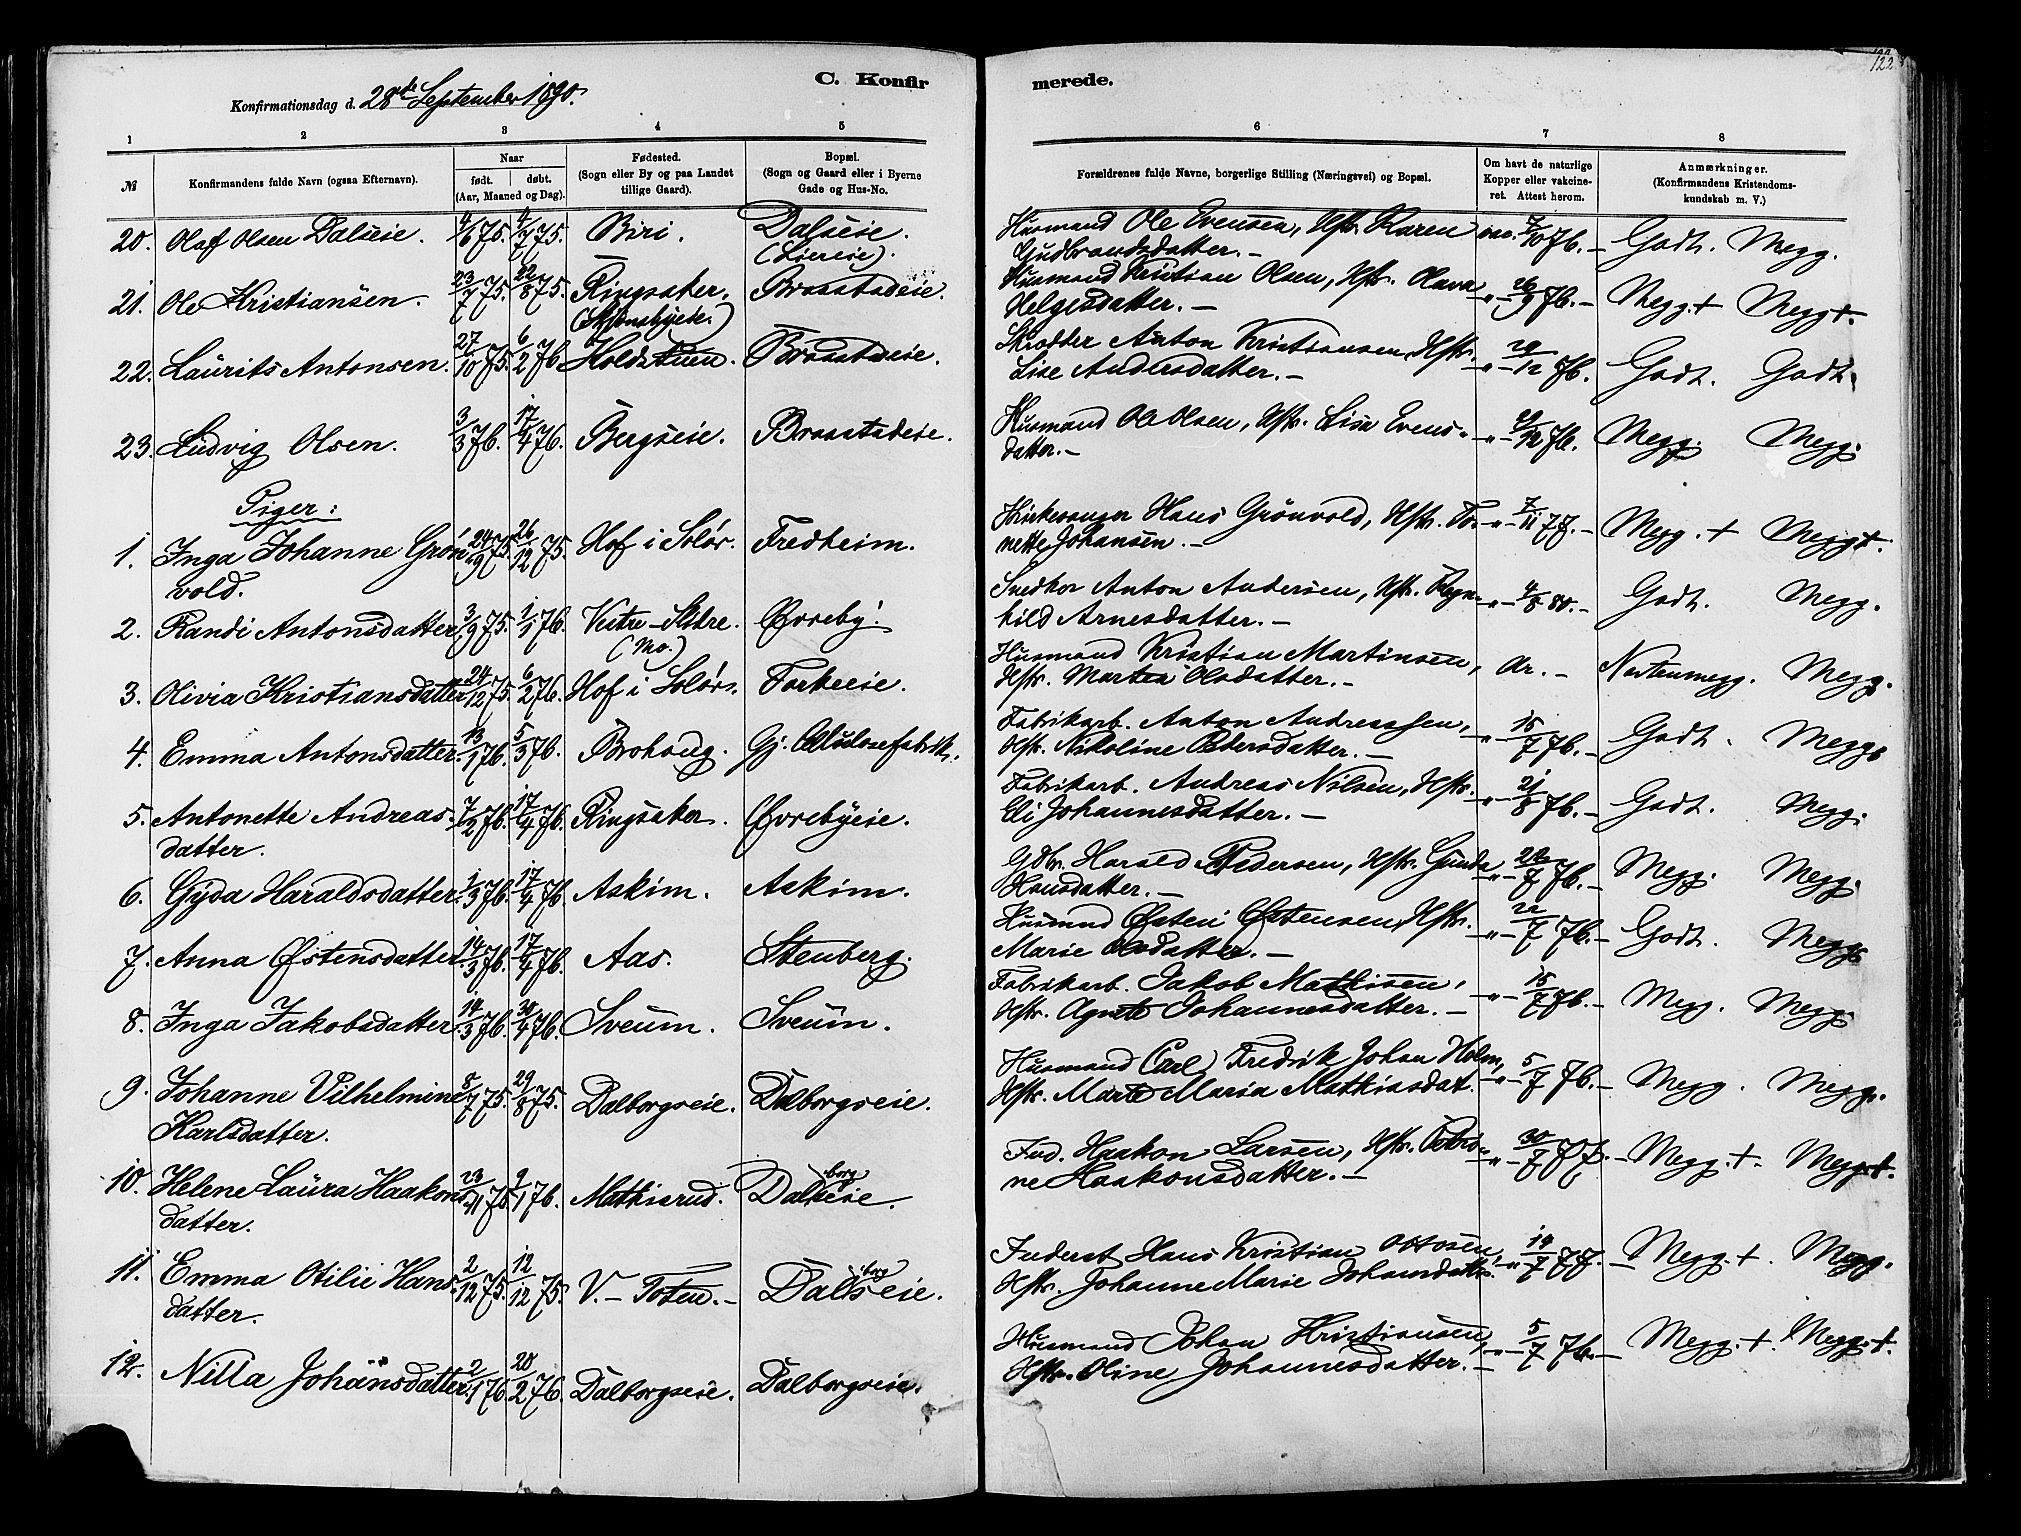 122
C. Konfirmerede.
Konfirmationsdag d. 28de September 1890.
1 2 3 4 5 6 7 8
№ Konfirmandens fulde Navn (ogsaa Efternavn). Naar født. døbt. (Aar, Maaned og Dag). Fødested. (Sogn eller By og paa Landet tillige Gaard). Bopæl. (Sogn og Gaard eller i Byerne Gade og Hus-No. Forældrenes fulde Navne, borgerlige Stilling (Næringsvei) og Bopæl. Om havt de naturlige Kopper eller vakcineret. Attest herom. Anmærkninger. (Konfirmandens Kristendomskundskab m. V.)
20. Olaf Olsen Dalseie. 4/6 75. 4/7 75. Biri. Dalseie. Husmand Ole Evensen, Hstr. Karen vac. 7/10 76. Godt. Megg.
(Liereie). Gudbrandsdatter.
21. Ole Kristiansen. 23/7 75. 22/8 75. Ringsaker. Braastadeie. Husmand Kristian Olsen, Hstr. Olava -"- 26/9 76. Megg.+ Megg+.
Helgesdatter.
22. Laurits Antonsen. 27/10 75. 6/2 76 Holdstuen. Braastadeie. Skrædder Anton Kristiansen, Hstr. -"- 29/12 76. Godt. Godt.
Lise Andersdatter.
23. Ludvig Olsen. 3/3 76. 17/4 76. Bergseie. Braastadeie. Husmand Ole Olsen, Hstr. Lisa Evens- -"- 29/12 76. Megg. Megg.
datter.
Piger:
1. Inga Johanne Grön- 24/9 75. 26/12 75. Hof i Solør. Fredheim. Kirkesanger Hans Grönvold, Hstr. To- -"- 7/11 78. Megg. + Megg+.
vold. nette Johansen.
2. Randi Antonsdatter 3/9 75. 1/1 76. Vestre-Slidre. Øvreby. Snedker Anton Andersen, Hstr. Ragn- -"- 4/8 80. Godt. Megg.
(Mo.) hild Arnesdatter.
3. Olivia Kristiansdatter 24/12 75. 6/2 76. Hof i Solør. Farkeeie. Husmand Kristian Martinsen, ar. Næstenmegg. Megg.
Hstr. Martea Olsdatter.
4. Emma Antonsdatter. 13/1 76. 5/3 76. Brohaug. Gj. Cellulosefabrik. Fabrikarb. Anton Andreassen, -"- 15/7 76. Godt. Megg.
Hstr. Nikoline Pedersdatter.
5. Antonette Andreas- 7/2 76. 17/4 76. Ringsaker. Øvrebyeie. Fabrikarb. Andreas Nilsen, Hstr. -"- 21/8 76. Godt. Megg.
datter. Eli Johannesdatter.
6. Gyda Haraldsdatter. 1/3 76. 17/4 76. Askim. Askim. Gdbr. Harald Pedersen, Hstr. Gunda -"- 22/7 76. Megg. Megg.
Hansdatter.
7. Anna Østensdatter. 14/3 76. 17/4 76. Aas. Stenberg. Husmand Østen Østensen, Hstr. -"- 22/7 76. Godt. Megg.
Marie Olsdatter.
8. Inga Jakobsdatter. 14/3 76. 30/4 76. Sveum. Sveum. Fabrikarb. Jakob Mathisen, -"- 15/7 76. Megg. Megg.
Hstr. Agnete Johannesdatter.
9. Johanne Vilhelmine 8/7 75. 29/8 75. Dalborgseie. Dalborgseie. Husmand Carl Fredrik Johan Holm, -"- 5/7 76. Megg. Megg.
Karlsdatter. Hstr. Marte Maria Mathiasdat.
10. Helene Laura Haakons- 23/11 75. 9/1 76. Mathisrud. Dalborgseie. Ind. Haakon Larsen, Hstr. Petri- -"- 30/7 77. Megg.+. Megg.+.
datter. ne Haakonsdatter.
11. Emma Otilie Hans- 2/12 75. 12/12 75. V.-Toten. Dalborgseie. Inderst Hans Kristian Ottosen, -"- 19/7 77. Megg.+. Megg.
datter. Hstr. Johanne Marie Johansdatter.
12. Nilla Johansdatter. 2/1 76. 20/2 76. Dalborgseie. Dalborgseie. Husmand Johan Kristiansen, -"- 5/7 76. Megg.+. Megg.+.
Hstr. Oline Johannesdatter.